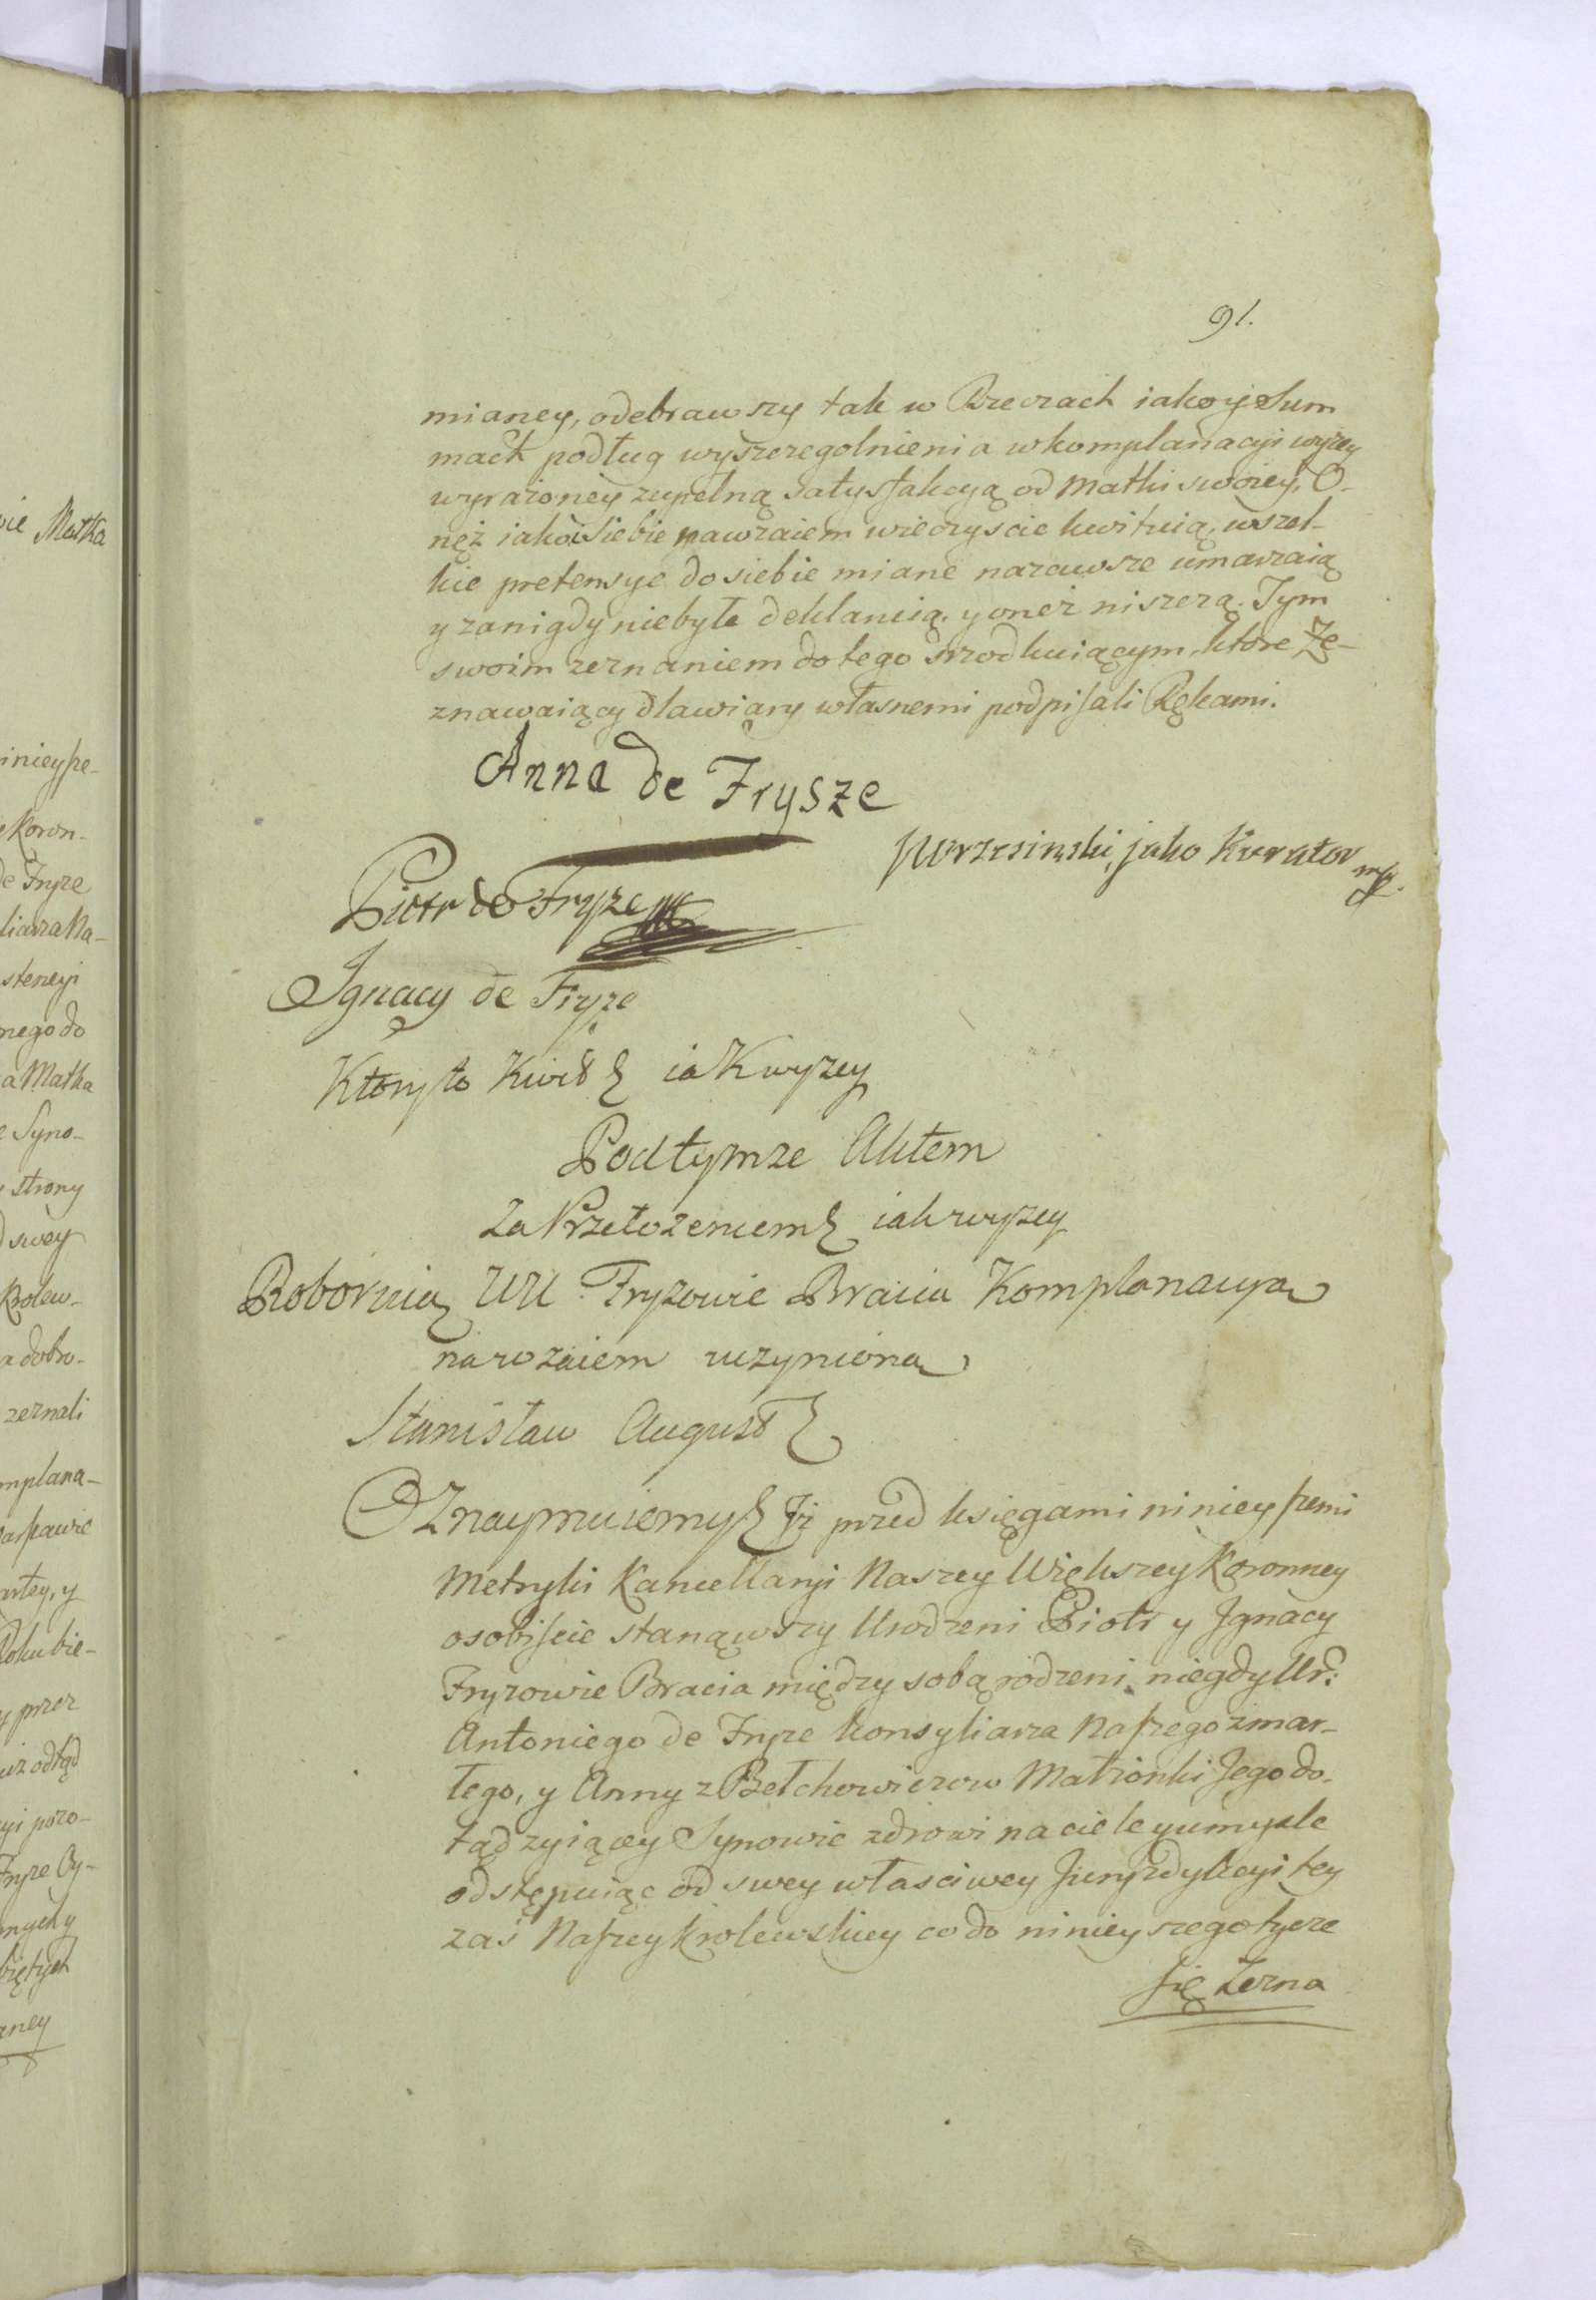 91.
mianey, odebrawszy tak w Rzeczach iako y Sum
mach podług wyszczegolnienia w komplanacyi wyżey
wyrażoney zupełną Satysfakcyą od Matki swoiey, O-
nęż iako i Siebie nawzaiem wieczyscie kwituią, wszel-
kie pretensye do siebie miane nazawsze umarzaią
y zanigdy niebyłe deklaruią. y oneż niszczą. Tym
swoim zeznaniem do tego srzodkuiącym, ktore Ze-
znawaiący dla wiary własnemi podpisali Rękami.
Anna de Frysze
Wrzesinski, jako Kurator mp.
Piotr de Fryze mp
Ignacy de Fryze
Ktorysto Kwit iak wyzey
Pod tymze Aktem
Za Przełozeniem iak wyzey
Roboruią UU. Fryzowie Bracia Komplanacyą
nawzaiem uczynioną
Stanisław August
Oznaymuiemy Iż przed księgami ninieyszemi
Metryki Kancellaryi Naszey Większey Koronney
osobiscie stanąwszy Urodzeni Piotr y Ignacy
Fryzowie Bracia między sobą rodzeni niegdy Ur:
Antoniego de Fryze konsyliarza Naszego zmar-
łego, y Anny z Bełchowiczow Małżonki Jego do-
tąd zyiącey Synowie zdrowi na ciele y umysle
odstępuiąc od swey własciwey Jurysdykcyi tey
zaś Naszey krolewskiey co do ninieyszego tycze
się Zezna
vie Matka
inieysze-
e Koron-
de Fryze
liarza Na-
stencyi
nego do
a Matka
e Syno-
y strony
d swey
Krolew-
a dobro-
zeznali
mplana-
arłey, y
y przez
uż odtąd
Fryze Oy-
aney